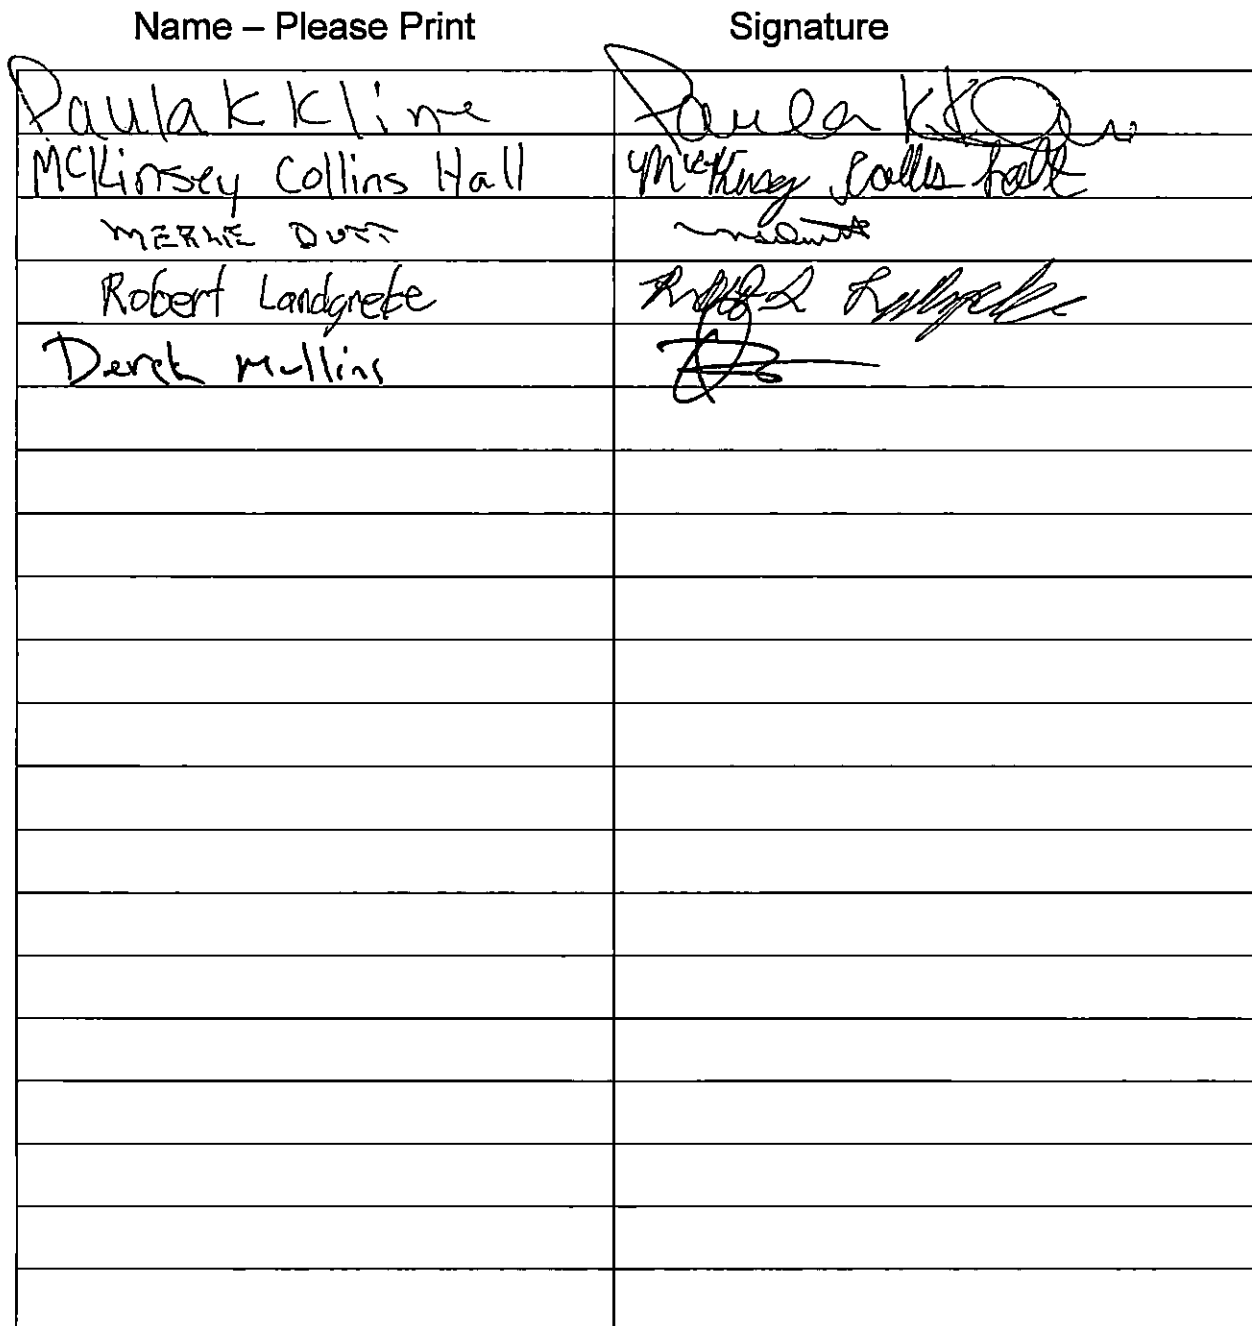 Name – Please Print Signature
Paula K Kline Paula K Kline
McKinsey Collins Hall McKinsey Collins Hall
MERLE DUTT
Robert Landgrebe
Derek Mullins